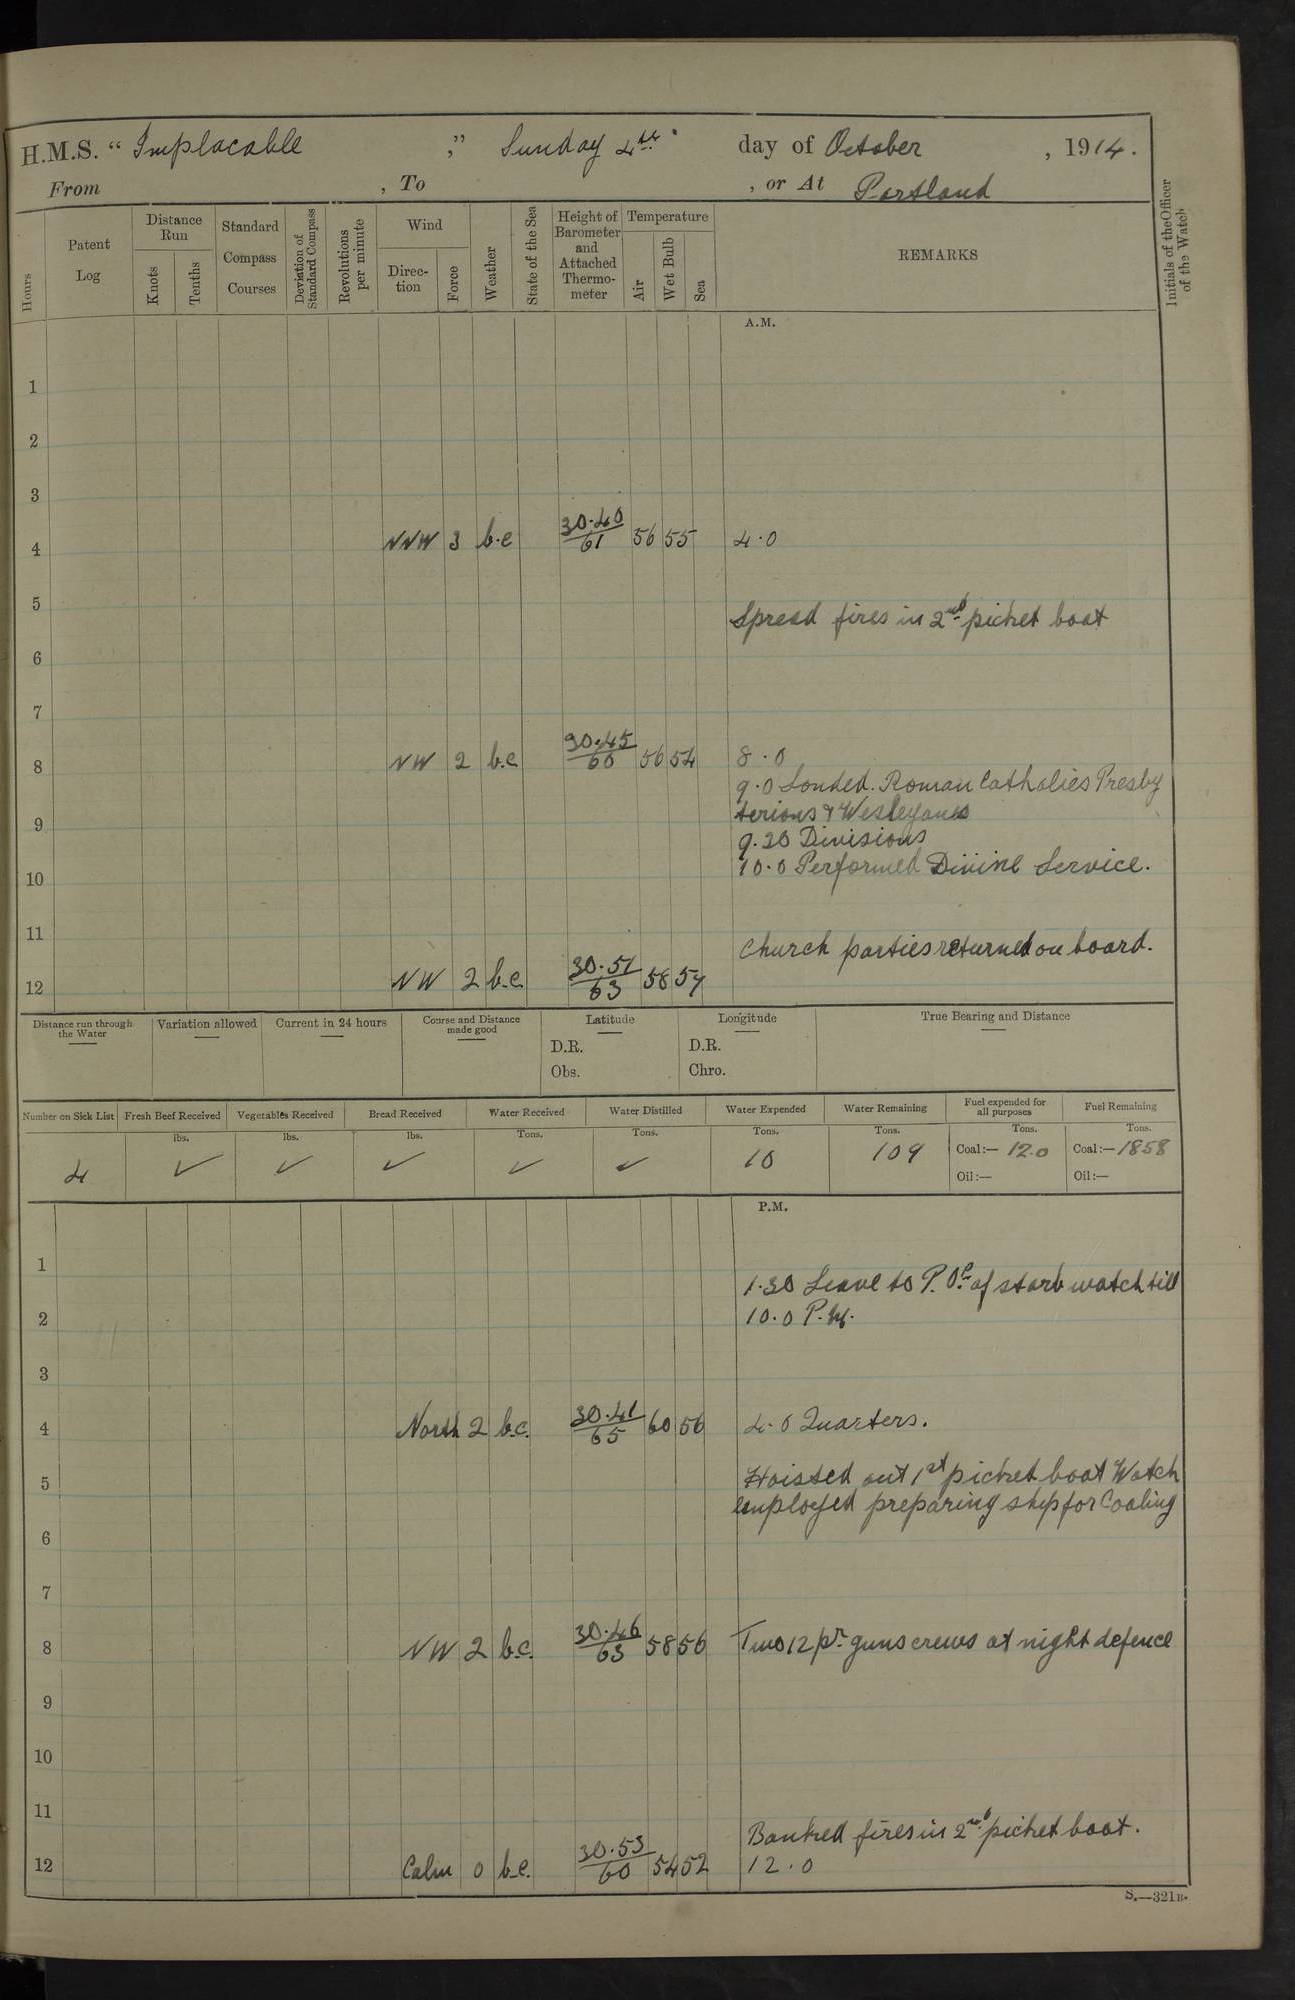 H.M.S. " Implacable ," Sunday 4th day of October , 1914.
From , To , or At Portland
Hours
Patent Log
Distance Run
Knots
Tenths
Standard Compass Courses
Deviation of Standard Compass
Revolutions per minute
Wind
Direc-tion
Force
Weather
State of the Sea
Height of Barometer and Attached Thermo-meter
Temperature
Air
Wet Bulb
Sea
REMARKS
Initials of the Officer of the Watch
A.M.
1
2
3
4 NNW 3 b.c 30.40/61 56 55 4.0
5
Spread fires in 2nd picket boat
6
7
8 NW 2 b.c 30.45/60 56 54 8.0
9.0 Landed. Roman Catholics Presby
9 terians & Wesleyans
9.20 Divisions
10.0 Performed Divine Service.
10
11
Church parties returned on board.
12 NW 2 b.c. 30.51/63 58 57
Distance run through the Water
Variation allowed
Current in 24 hours
Course and Distance made good
Latitude
D.R.
Obs.
Longitude
D.R.
Chro.
True Bearing and Distance
Number on Sick List
Fresh Beef Received
Vegetables Received
Bread Received
Water Received
Water Distilled
Water Expended
Water Remaining
Fuel expended for all purposes
Fuel Remaining
lbs. lbs. lbs. Tons. Tons. Tons. Tons. Tons. Tons.
4 ✓ ✓ ✓ ✓ ✓ 10 109 Coal:— 12.0 Coal:— 1858
Oil:— Oil:—
P.M.
1
1.30 Leave to P.Ors of starb watch till
2 10.0 P.M.
3
4 North 2 b.c. 30.41/65 60 56 4.0 Quarters.
5 Hoisted out 1st picket boat Watch
employed preparing ship for Coaling
6
7
8 NW 2 b.c. 30.46/63 58 56 Two 12 pr guns crews at night defence
9
10
11
Banked fires in 2nd picket boat.
12 Calm 0 b.c. 30.53/60 54 52 12.0
S.—321B.